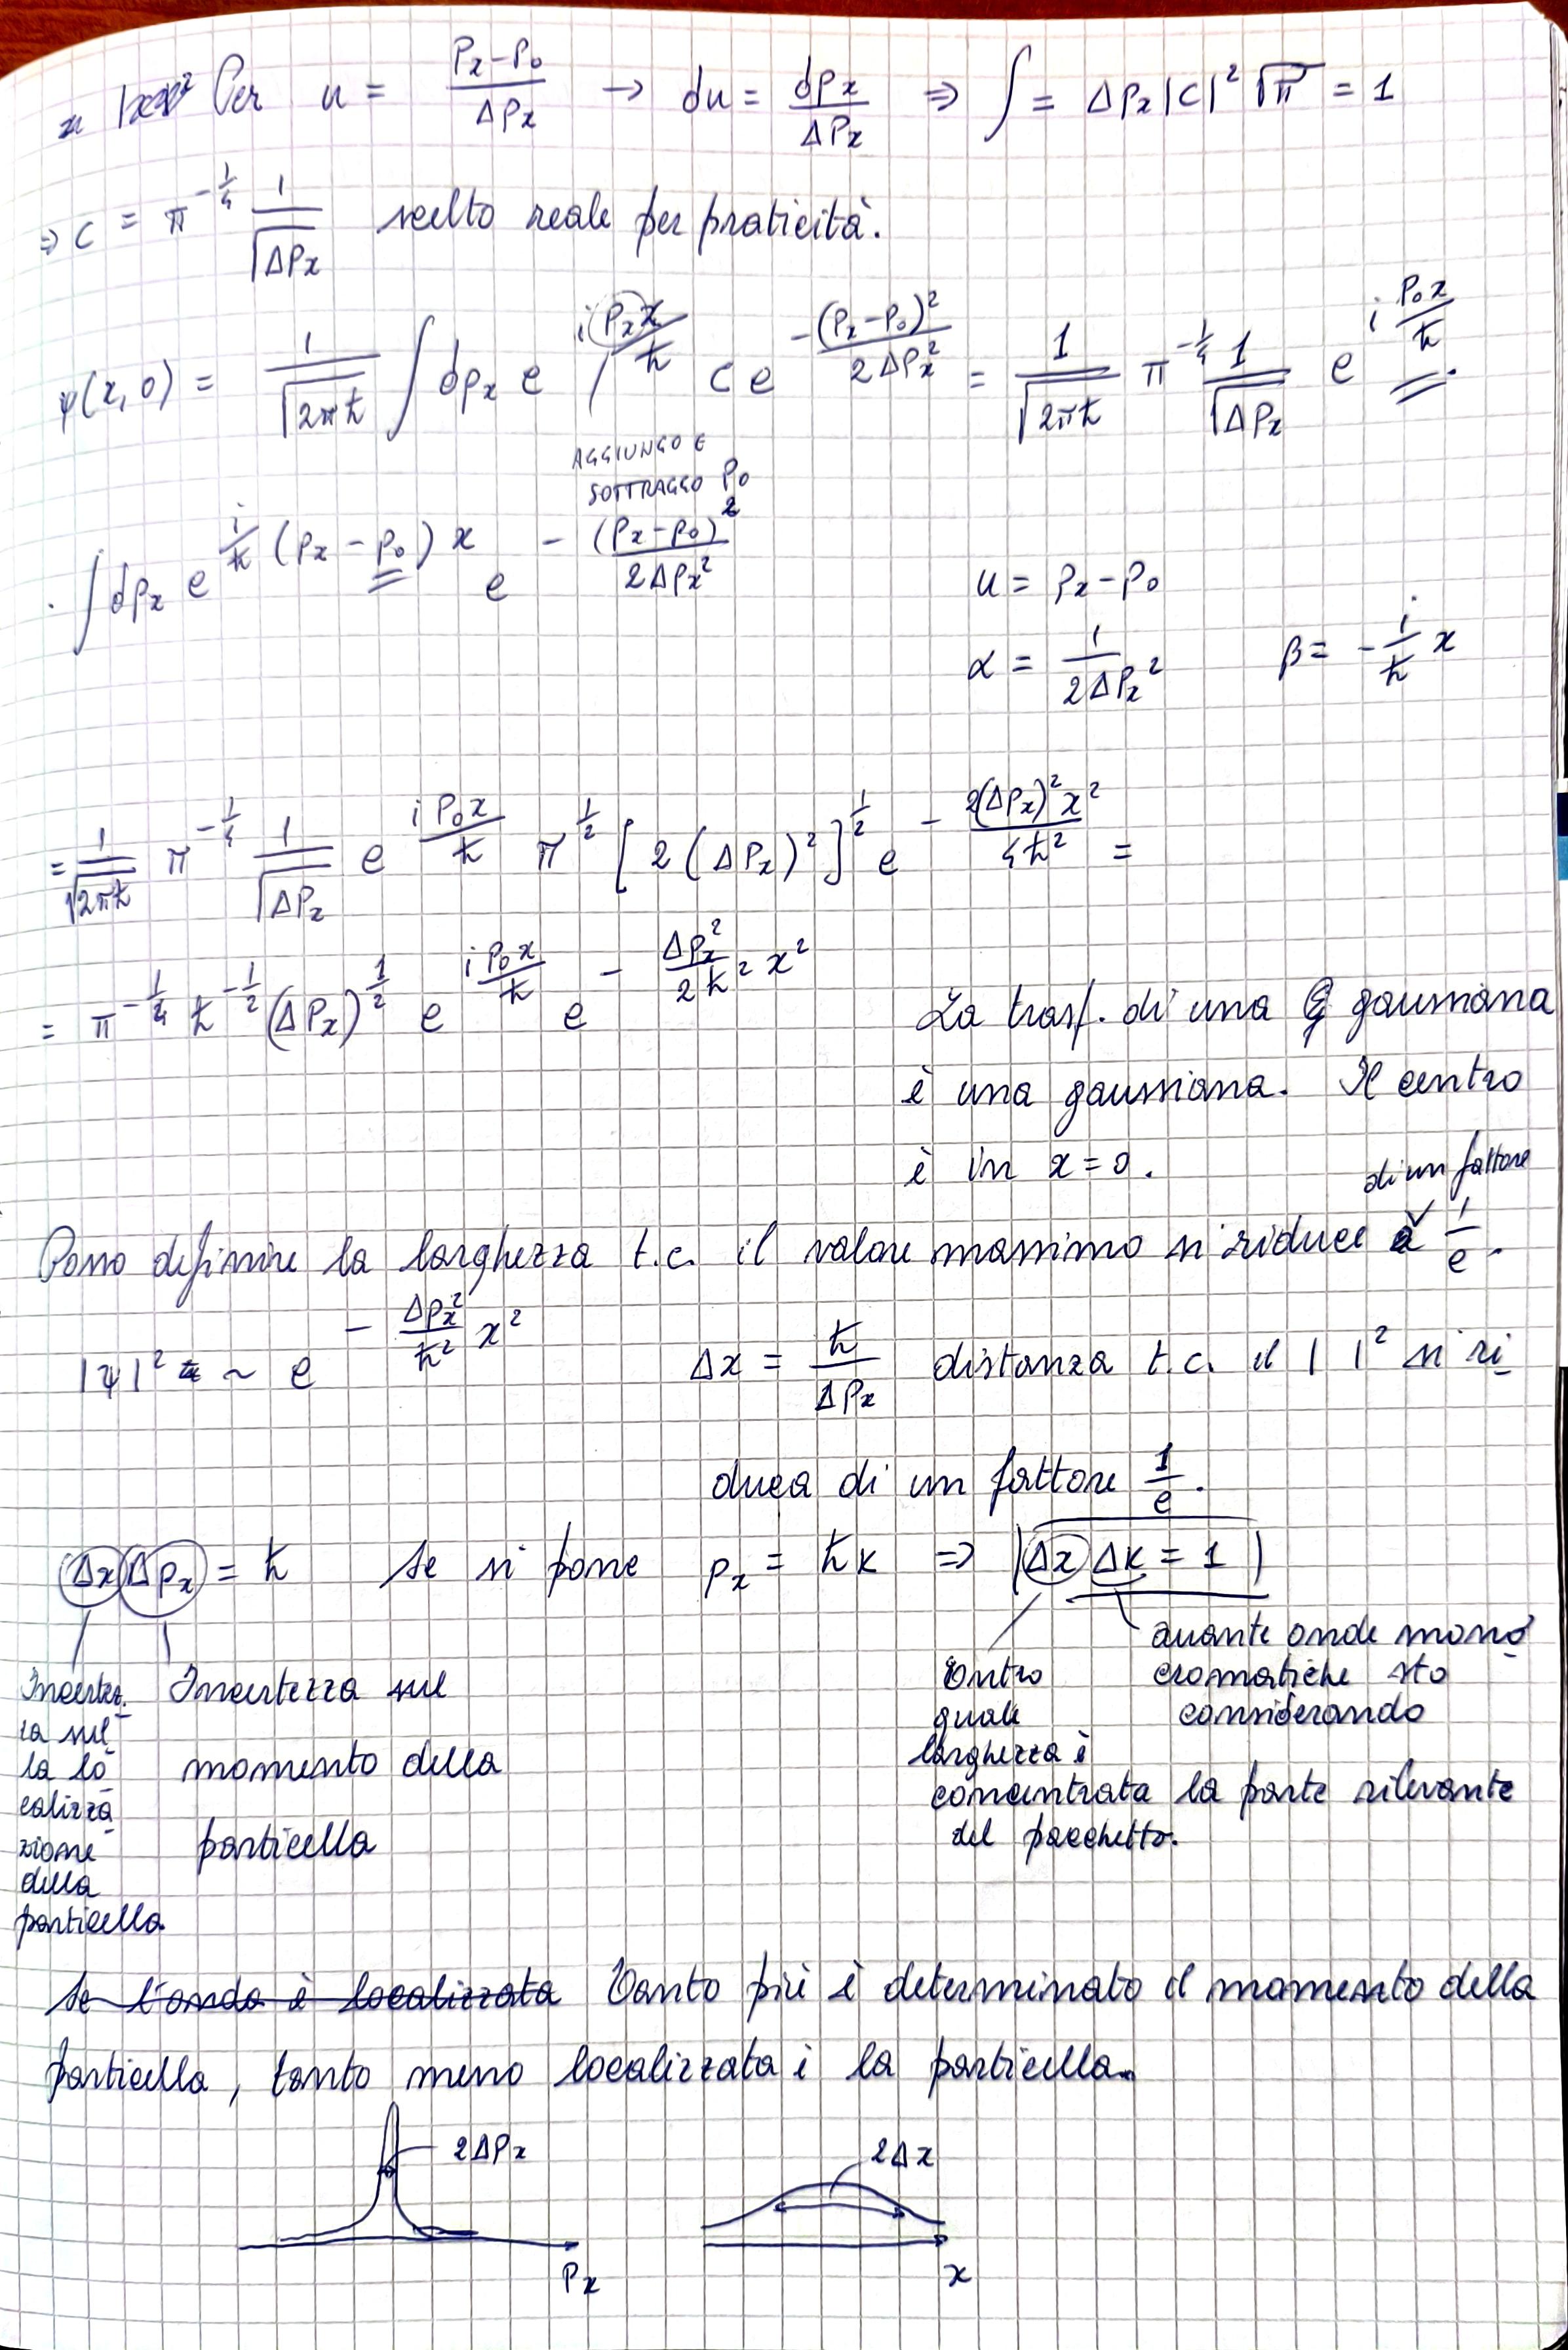 Per u = \frac{P_x - P_0}{\Delta P_x} → du = \frac{dp_x}{\Delta P_x} ⇒ ∫ = \Delta P_x |C|^2 \sqrt{\pi} = 1
⇒ C = \pi^{-\frac{1}{4}} \frac{1}{\sqrt{\Delta P_x}} scelto reale per praticità.
\psi(x,0) = \frac{1}{\sqrt{2\pi\hbar}} ∫ dp_x e^{i\frac{P_x x}{\hbar}} C e^{-\frac{(P_x - P_0)^2}{2\Delta P_x^2}} = \frac{1}{\sqrt{2\pi\hbar}} \pi^{-\frac{1}{4}} \frac{1}{\sqrt{\Delta P_x}} e^{i\frac{P_0 x}{\hbar}} ·
AGGIUNGO E
SOTTRAGGO P_0
· ∫ dp_x e^{\frac{i}{\hbar}(p_x - p_0)x} e^{-\frac{(p_x - p_0)^2}{2\Delta p_x^2}}
u = p_x - p_0
α = \frac{1}{2\Delta P_x^2} β = -\frac{i}{\hbar} x
= \frac{1}{\sqrt{2\pi\hbar}} \pi^{-\frac{1}{4}} \frac{1}{\sqrt{\Delta P_x}} e^{i\frac{P_0 x}{\hbar}} \pi^{\frac{1}{2}} [2(\Delta P_x)^2]^{\frac{1}{2}} e^{-\frac{2(\Delta P_x)^2 x^2}{4\hbar^2}} =
= \pi^{-\frac{1}{4}} \hbar^{-\frac{1}{2}} (\Delta P_x)^{\frac{1}{2}} e^{i\frac{P_0 x}{\hbar}} e^{-\frac{\Delta p_x^2}{2\hbar^2} x^2}
La trasf. di una gaussiana
è una gaussiana. Il centro
è in x = 0.
di un fattore
Posso definire la larghezza t.c. il valore massimo si riduce \frac{1}{e}.
|\psi|^2 ~ e^{-\frac{\Delta p_x^2}{\hbar^2} x^2} \Delta x = \frac{\hbar}{\Delta P_x} distanza t.c. il | |^2 si ri
duca di un fattore \frac{1}{e}.
\Delta x \Delta p_x = \hbar Se si pone p_x = \hbar k ⇒ \Delta x \Delta k = 1
Incertez
za sul
la lo
calizza
zione
della
particella
Incertezza sul
momento della
particella
Entro
quale
larghezza è
concentrata la parte rilevante
del pacchetto.
quante onde mono
cromatiche sto
considerando
Se l'onda è localizzata Tanto più è determinato il momento della
particella, tanto meno localizzata è la particella.
2\Delta P_x
P_x
2\Delta x
x